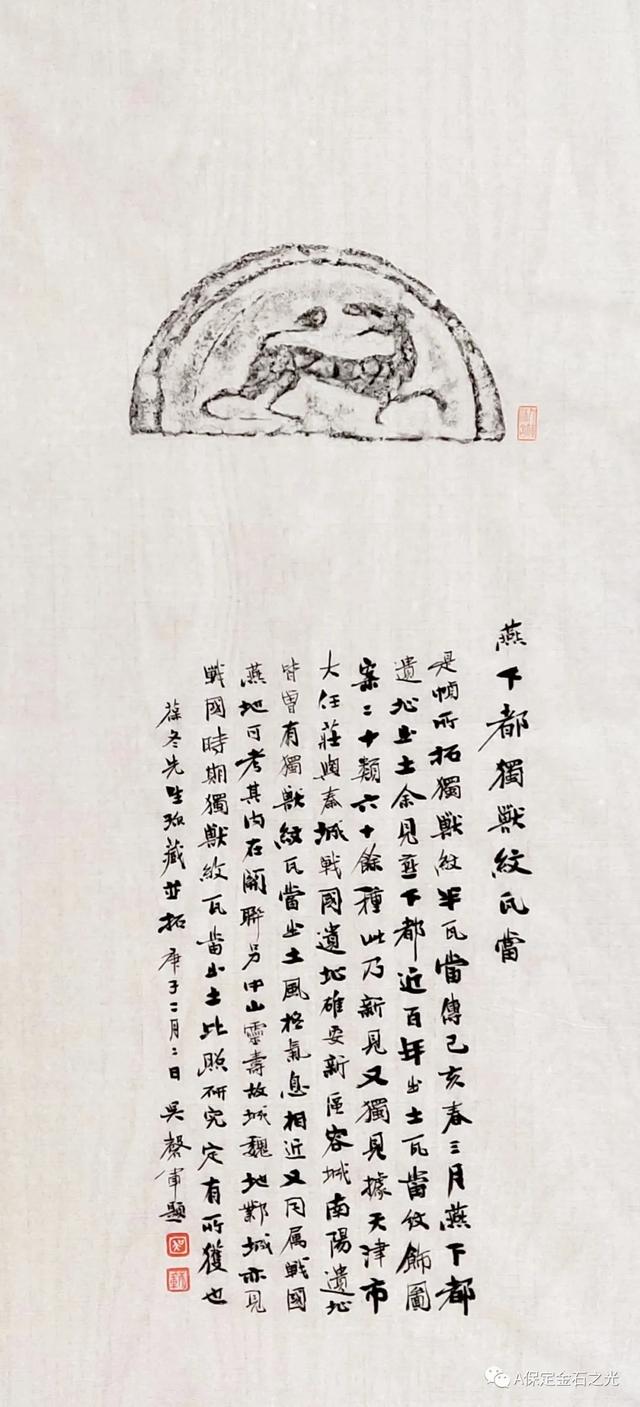 燕下都獨獸紋瓦當
是幀所拓獨獸紋半瓦當傳己亥春三月燕下都
遺址出土余見燕下都近百年出土瓦當紋飾圖
案二十類六十餘種此乃新見又獨見據天津市
大任莊與秦城戰國遺址雄安新區容城南陽遺址
皆曾有獨獸紋瓦當出土風格氣息相近又同属戰國
燕地可考其内在關聯另中山靈壽故城魏地鄴城亦見
戰國時期獨獸紋瓦當出土比照研究定有所獲也
葆冬先生珍藏並拓庚子二月二日吳磬軍題
A保定金石之光